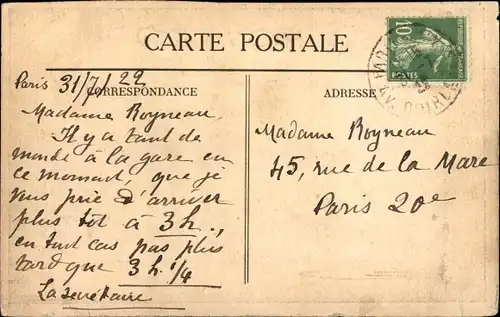 CARTE POSTALE
10c
POSTES
Paris 31/7/22
CORRESPONDANCE
ADRESSE
Madame Royneau,
Il y a tant de
monde à la gare en
ce moment, que je
vous prie d'arriver
plus tôt à 3h.,
en tout cas pas plus
tard que 3h. 1/4
La secrétaire
Madame Royneau
45, rue de la Mare
Paris 20e